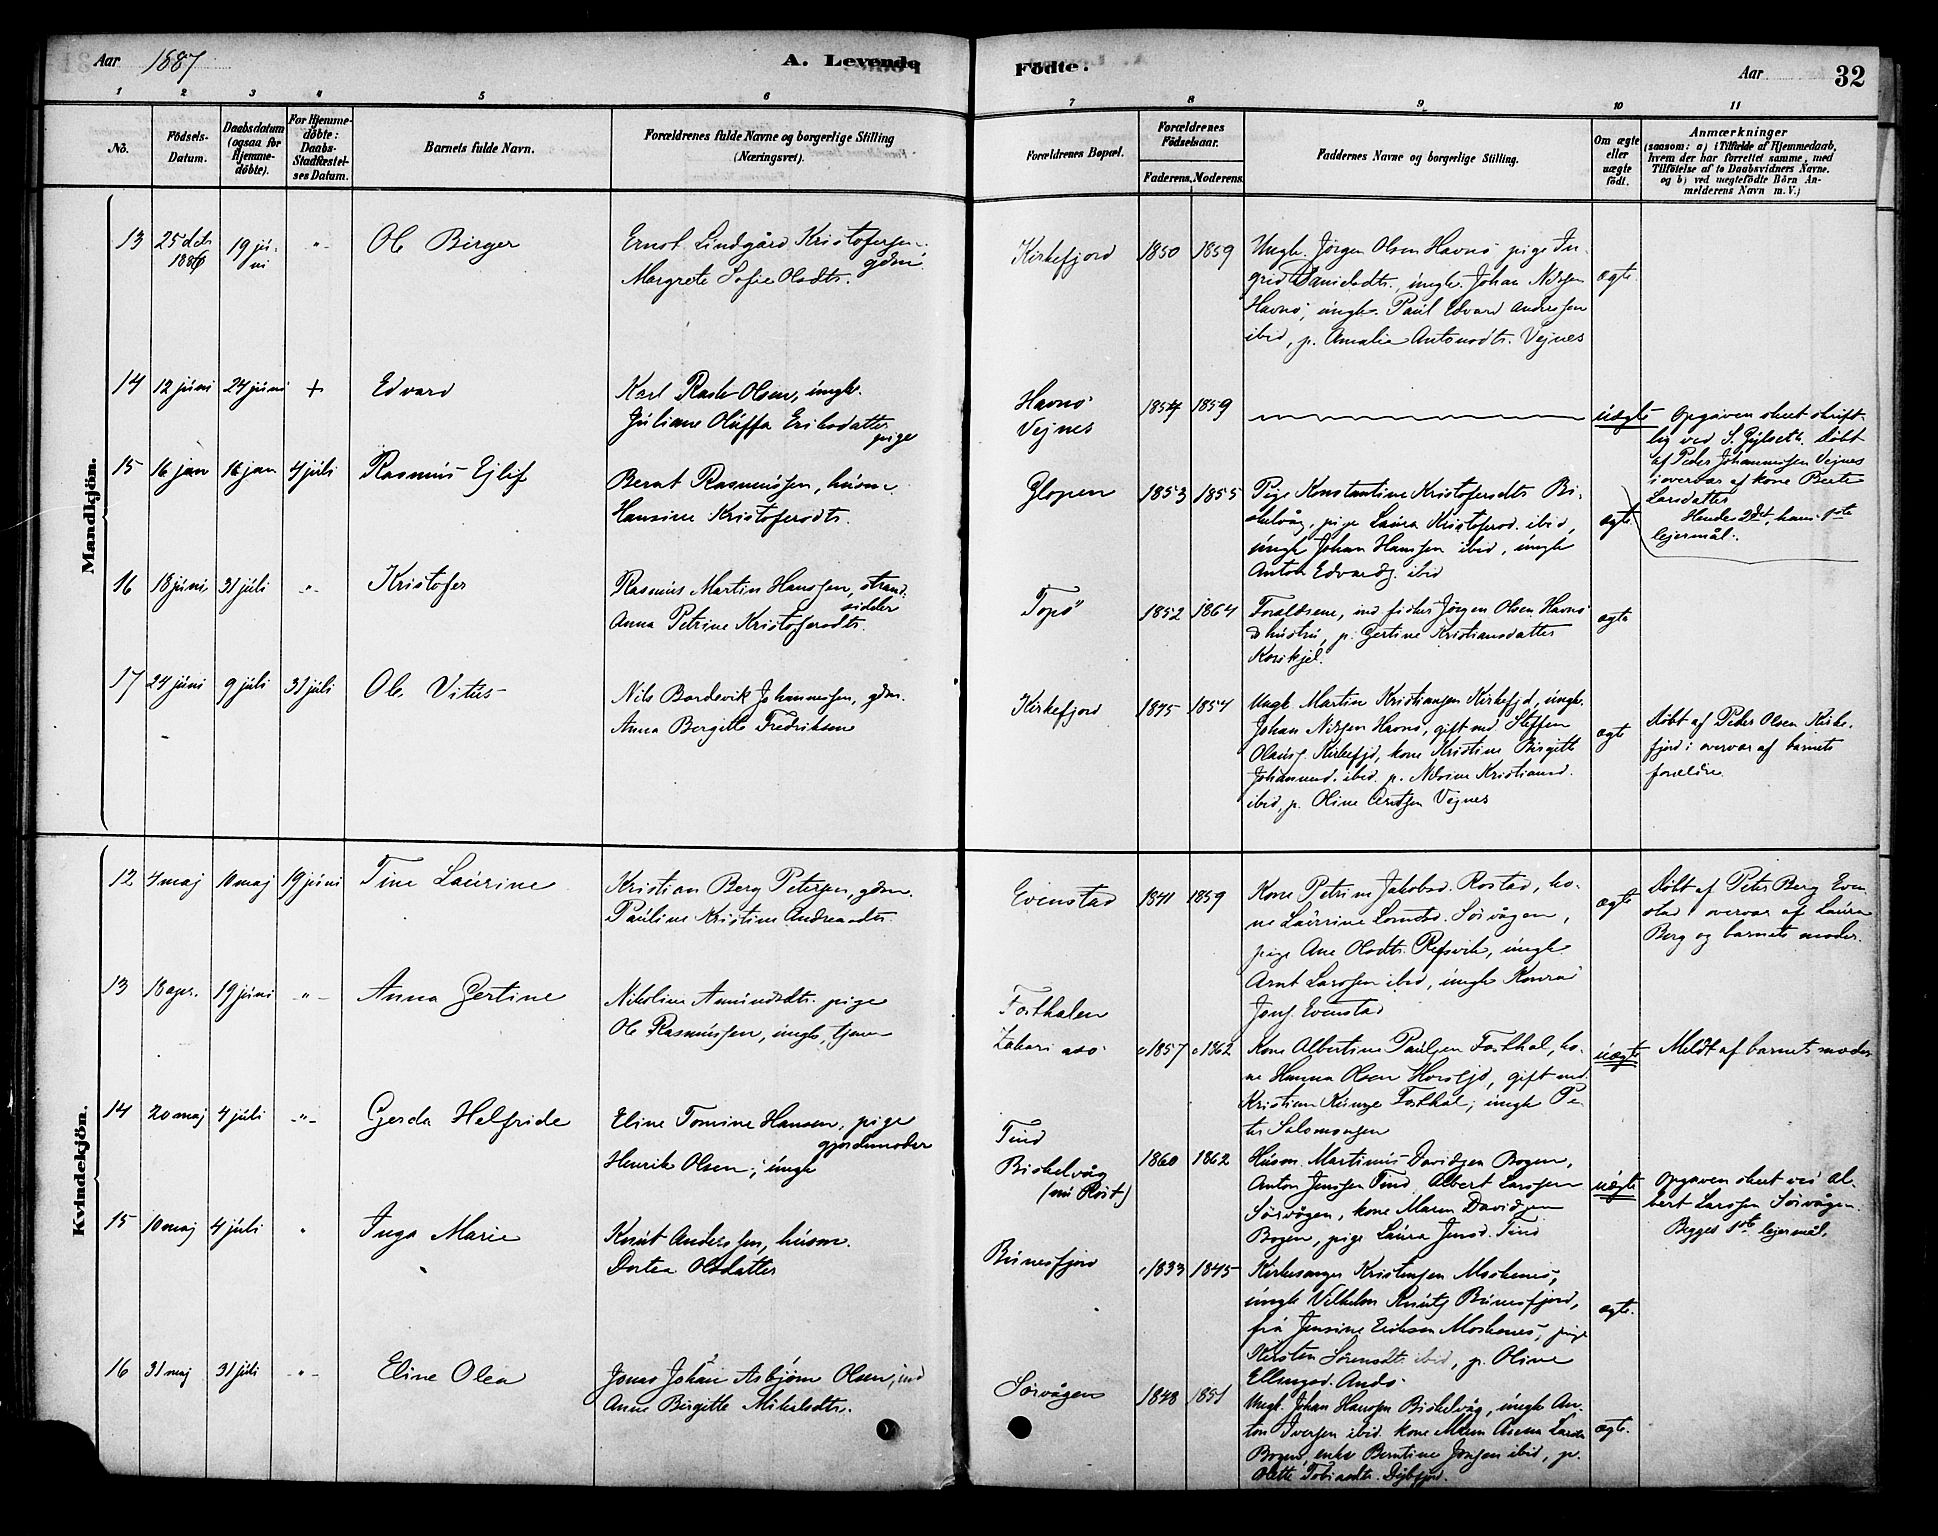 Aar 1887
A. Levende
Födte.
Aar
32
1 2 3 4 5 6 7 8 9 10 11
No.
Födsels-
Datum.
Daabsdatum
(ogsaa for
Hjemme-
döbte).
For Hjemme-
döbte:
Daabs-
Stadfæstel-
ses Datum.
Barnets fulde Navn.
Forældrenes fulde Navne og borgerlige Stilling
(Næringsvei).
Forældrenes Bopæl.
Forældrenes
Födselsaar.
Faderens. Moderens.
Faddernes Navne og borgerlige Stilling.
Om ægte
eller
uægte
födt.
Anmærkninger
(saasom: a) i Tilfælde af Hjemmedaab,
hvem der har forrettet samme, med
Tilföielse af to Daabsvidners Navne.
og b) ved uegtefödte Börn An-
melderens Navn m. V.)
Mandkjön.
13 25 dcb 1886 19 juni -"- Ole Birger
Ernst Lindgård Kristofersen
gdm
Margrete Sofie Olsdtr.
Kirkefjord 1850 1859
Ungk. Jörgen Olsen Havnö pige In-
grid Danieldtr., ungk. Johan Nilssen
Havnö, ungk. Paul Edvard Andressen
ibid, p. Amalie Antonsdtr. Vejnes
ægte.
14 12 juni 24 juni + Edvard
Karl Rasb Olsen, ungk.
Juliane Oluffa Eriksdatter
pige
Havnö
Vejnes
1854 1859
uægte
Opgaven skeet skrift-
lig ved S. Gylseth. Döbt
af Peder Johannessen Vejnes
i overvær af kone Berte
Larsdatter
Hendes 2det, hans 1ste
lejermål.
15 16 jan 16 jan 4 juli Rasmus Ejlif
Bernt Rasmussen, husm.
Hansine Kristofersdtr.
Glopen 1853 1855
Pige Konstantine Kristofersdtr Bi-
skelvåg, pige Laura Kristofersd. ibid,
ungk Johan Hanssen ibid, ungk
Anton Edvards. ibid
ægte.
16 18 juni 31 juli -"- Kristofer
Rasmus Martin Hanssen, strand-
sidder
Anna Petrine Kristofersdtr.
Topö 1852 1864
Forældrene, ind fisker Jörgen Olsen Havnö
& hustru, p. Gertine Kristiansdatter
ægte
17 24 juni 9 juli 31 juli Ole Vitus
Nils Bordevik Johannessen, gdm.
Anna Bergitte Fredriksen
Kirkefjord 1845 1854
Ungk Martin Kristiansen Kirkefjd, ungk.
Johan Nilssen Havnö, gift md. Steffen
Olaus. Kirkefjd, kone Kristine Birgitte
Johannesd. ibid. p. Nilsine Kristiansd.
ibid, p. Oline Arntsen Vejnes
ægte
Döbt af Peder Olsen Kirke-
fjord i overvær af barnets
forældre
Kvindekjön.
12 4 maj 10 maj 19 juni Tine Laurine
Kristian Berg Petersen, gdm.
Pauline Kristine Andreasdtr
Evenstad 1841 1859
Kone Petrine Jakobsd. Rostad, ko-
ne Laurine Sörvågen,
pige Ane Olsdtr. Refsvik, ungk
Arnt Larssen ibid, ungk
Evenstad
ægte
Döbt af Peter Berg Even-
stad i overvær af Laura
Berg og barnets moder.
13 18 apr. 19 juni -"- Anna Gertine
Nikoline Amundsdtr. pige
Ole Rasmussen, ungk, tjen
Forsthalen
c1857 c1862
Kone Albertine Paulsen Forsthal, ko-
ne Hanna Olsen, gift md.
Kristian Forsthal, ungk Pe-
ter Salomonsen
uægte
Meldt af barnets moder
14 20 maj 4 juli -"- Gjerda Helfride
Eline Tomine Hansen, pige
gjordemoder
Henrik Olsen, ungk
Tind
Biskelvåg
(nu Röst)
1860 1862
Husm. Martinus Davidsen Bogen,
Anton Jenssen Tind, Albert Larssen
Sörvågen, kone Maren Davidsen
Bogen, pige Laura Jensd. Tind
uægte
Opgaven skeet ved Al-
bert Larssen Sörvågen.
Begges 1ste lejermål.
15 10 maj 4 juli " Inga Marie
Knut Anderssen, husm.
Dortea Olsdatter
Bunesfjord c1833 1845
Kirkesanger Kristensen Moskenes,
ungk Vilhelm Knuts. Bunesfjord,
fru Jensine Eriksen Moskenes, pige
Kirsten Sörensdtr ibid, p. Oline
Ellingsd. Andö.
ægte.
16 31 maj 31 juli -"- Eline Olea
Jonas Johan Asbjörn Olsen, ind
Anne Birgitte Mikalsdtr.
Sörvågen 1848 1851
Ungk. Johan Hanssen Biskelvåg, ungk An-
ton Iversen ibid. kone Maren
Bogen, enke Berntine ibid, p.
Olette Tobiasdtr. Djupfjord.
ægte.